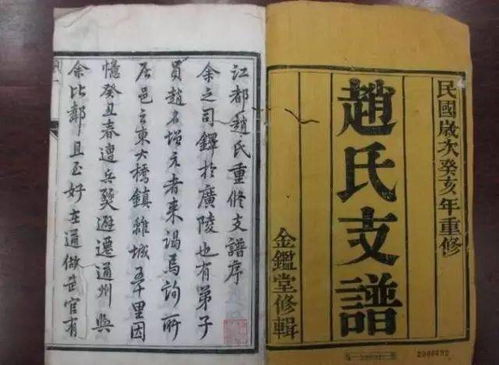 民國歲次癸亥年重修
趙氏支譜
金鑑堂修輯
江都趙氏重修支譜序
余之司鐸於廣陵也有弟子
員趙名增元者来謁焉詢所
居邑之東大橋鎮離城五十里因
憶癸丑春遭兵燹避遷通州與
余比鄰且至好在通做武官有